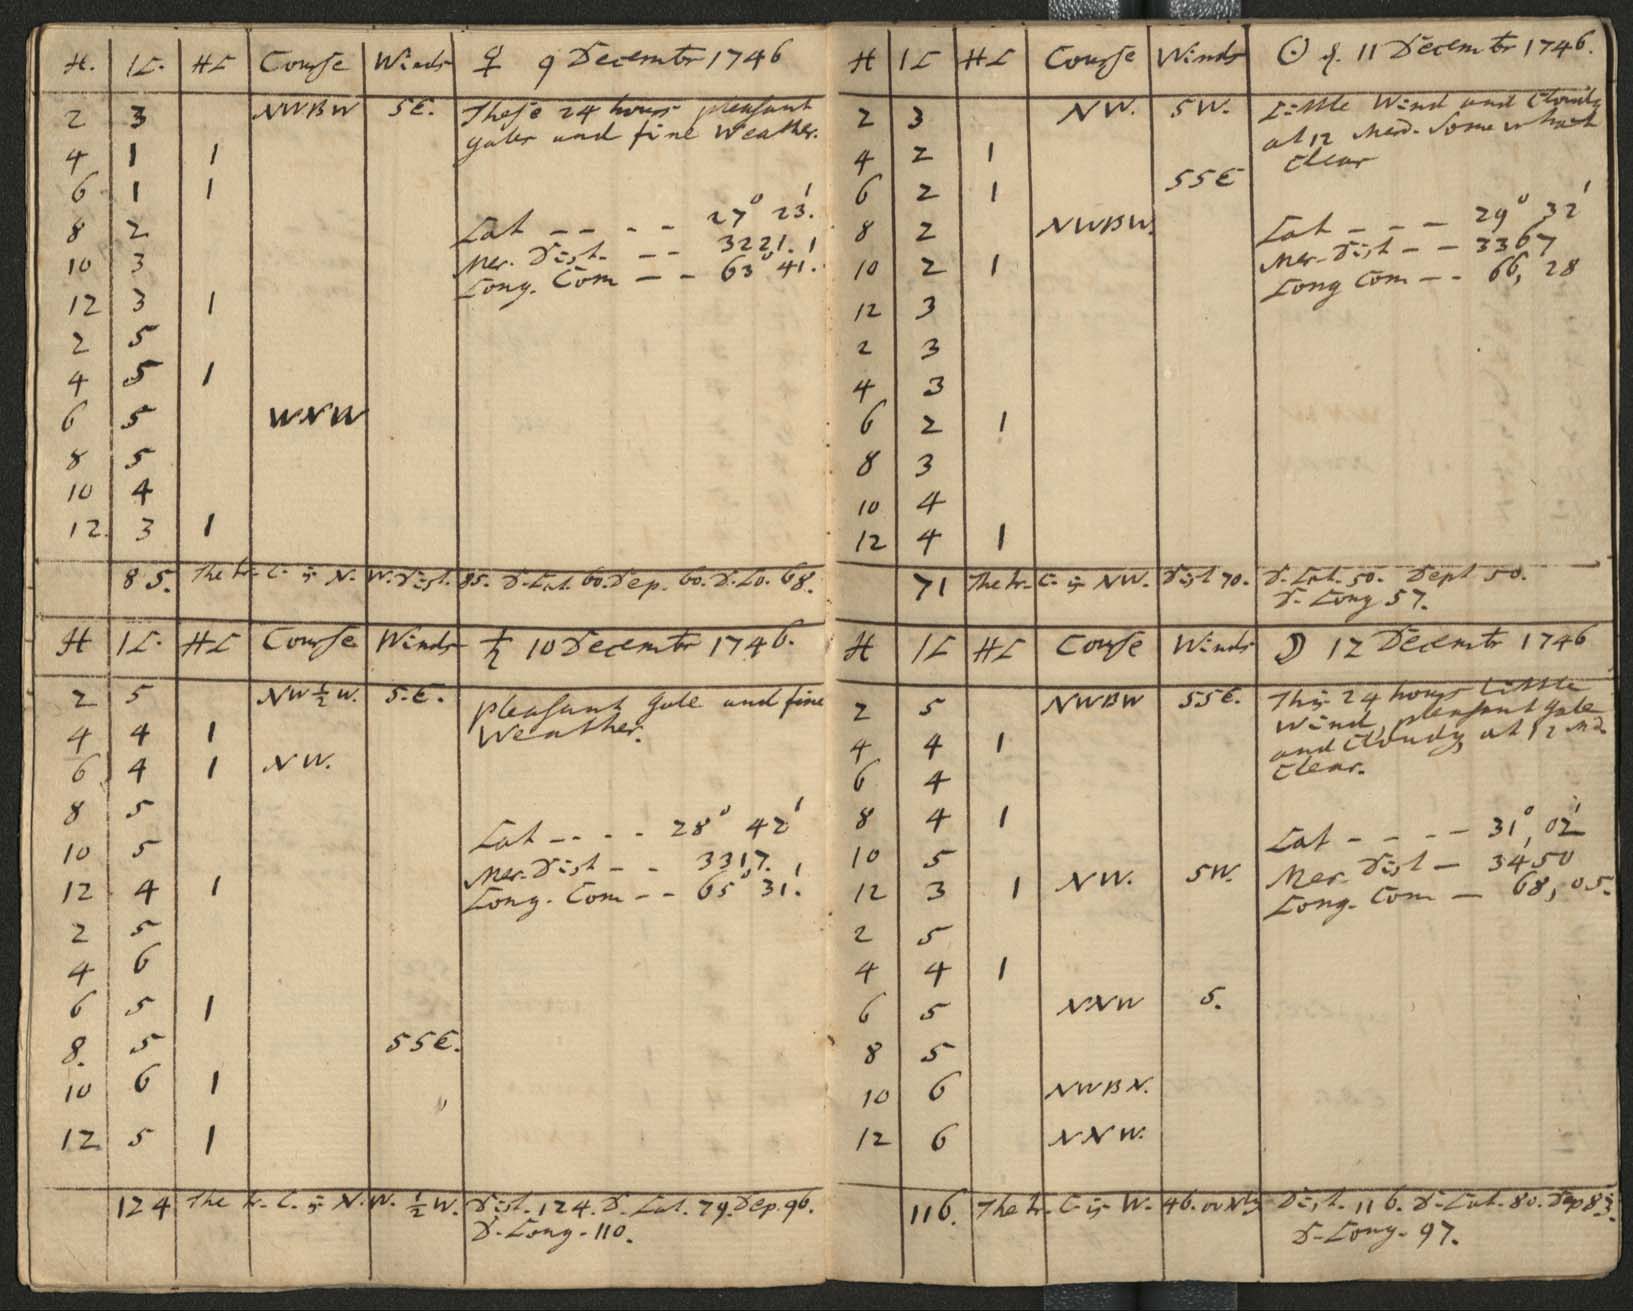 H. | K. | HK | Course | Winds | ♀ 9 Decembr 1746
2 | 3 | | NWBW | SE. | These 24 hours pleasant
gales and fine Weather.
4 | 1 | 1
6 | 1 | 1
8 | 2 | | | | Lat - - - - 27° 23'.
10 | 3 | | | | Mer. Dist. - - 3221. 1
Long. Com - - 63° 41'.
12 | 3 | 1
2 | 5
4 | 5 | 1
6 | 5 | | WNW
8 | 5
10 | 4
12. | 3 | 1
85. The tr. C. is N. W. Dist. 85. D. Lat. 60. Dep. 60. D. Lo. 68.
H | K. | HK | Course | Winds | ♄ 10 Decembr 1746.
2 | 5 | | NW ½ W. | S.E. | pleasant Gale and fine
Weather.
4 | 4 | 1
6 | 4 | 1 | NW.
8 | 5 | | | | Lat - - - - 28° 42'
10 | 5 | | | | Mer. Dist - - 3317.
12 | 4 | 1 | | | Long. Com - - 65° 31'.
2 | 5
4 | 6
6 | 5 | 1
8. | 5 | | | SSE.
10 | 6 | 1
12 | 5 | 1
124 The tr. C. is N. W. ½ W. Dist. 124. D. Lat. 79. Dep. 96.
D. Long. 110.
H | K | HK | Course | Winds | ☉ 11 Decembr 1746.
2 | 3 | | NW. | SW. | Little Wind and Cloudy
at 12 Merd. Somewhat
Clear
4 | 2 | 1
6 | 2 | 1 | | SSE
8 | 2 | | NWBW. | | Lat - - - 29° 32'
Mer. Dist - - 3367
10 | 2 | 1 | | | Long Com - - 66, 28
12 | 3
2 | 3
4 | 3
6 | 2 | 1
8 | 3
10 | 4
12 | 4 | 1
71 The tr. C. is NW. Dist 70. D. Lat. 50. Dept 50.
D. Long 57.
H | K | HK | Course | Winds | ☽ 12 Decembr 1746
2 | 5 | | NWBW | SSE. | This 24 hours Little
Wind, pleasant gale
and Cloudy at 12 Md.
Clear.
4 | 4 | 1
6 | 4
8 | 4 | 1 | | | Lat - - - - 31°, 02'
10 | 5 | | | | Mer. Dist - 3450
12 | 3 | 1 | NW. | SW. | Long. Com - 68, 05.
2 | 5
4 | 4 | 1
6 | 5 | | NNW | S.
8 | 5
10 | 6 | | NWBN.
12 | 6 | | NNW.
116. The tr. C. is W. 46. Dist. 116. D. Lat. 80. Dep 83.
D. Long. 97.